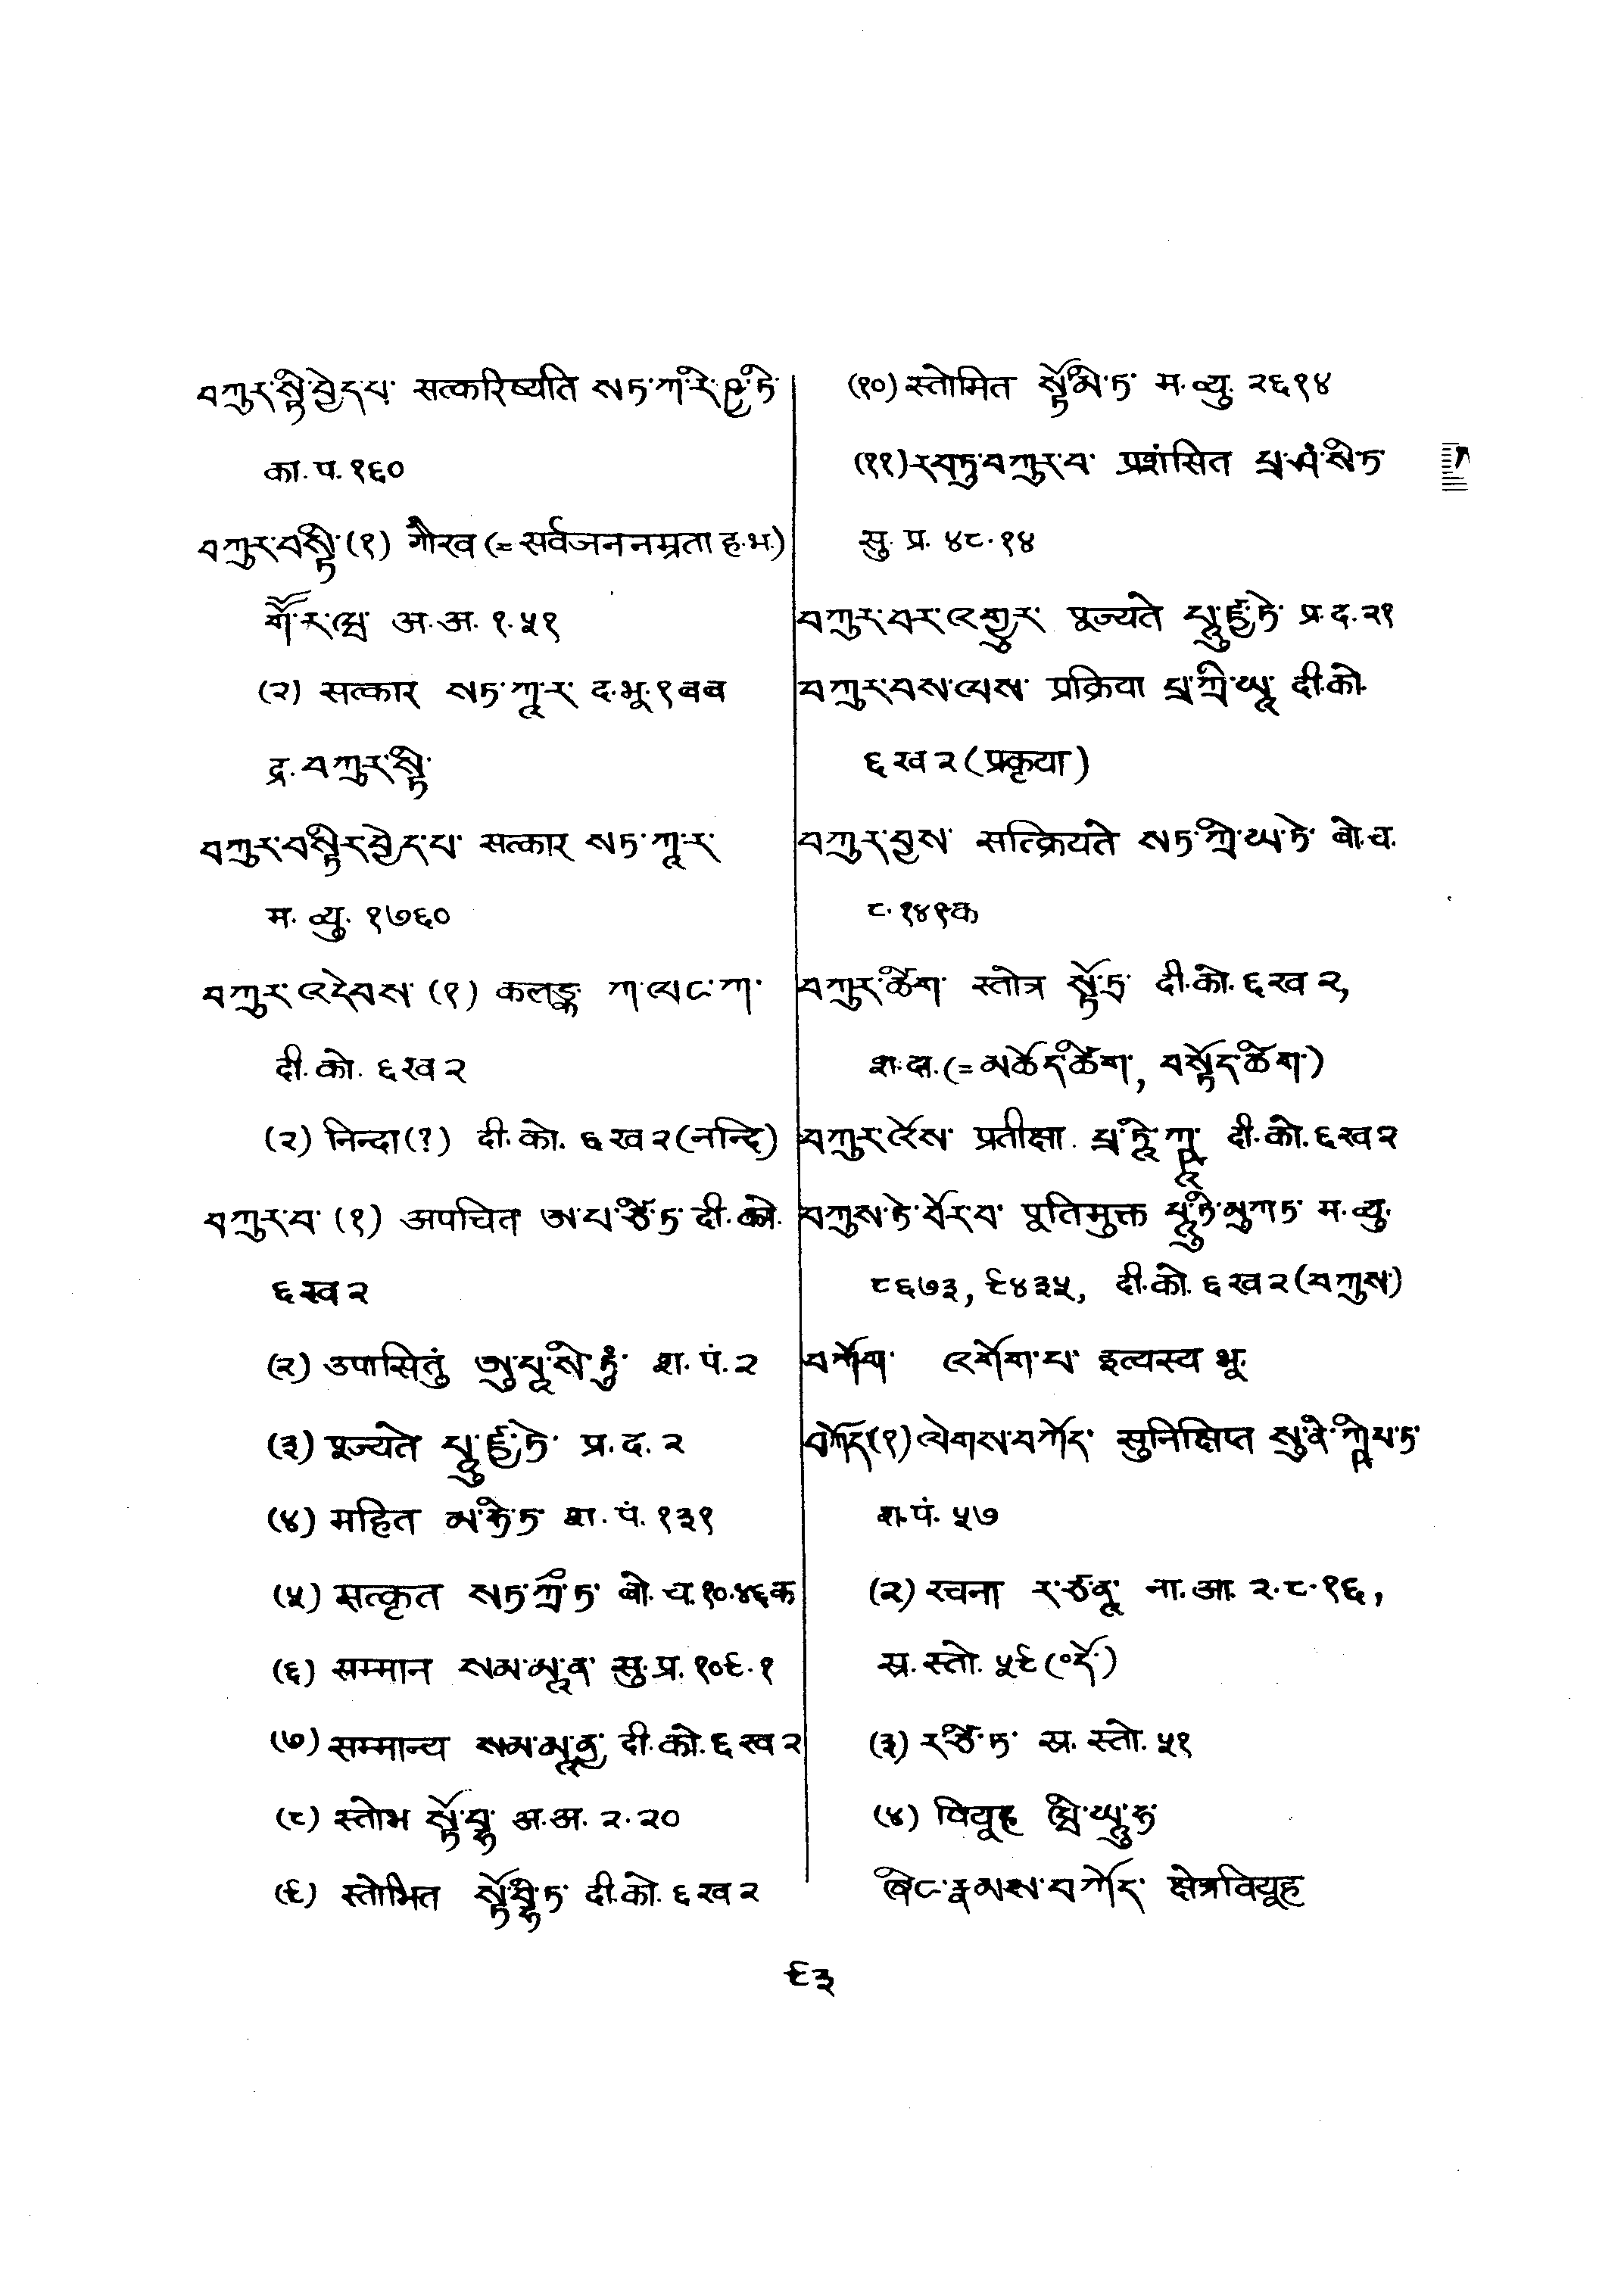 བཀུར་སྟི་བྱེད་པ་ सत्करिष्यति སཏ་ཀ་རི་ཥྱ་ཏི་
का. प. १६०
བཀུར་བསྟི་ (१) गौरव (= सर्वजननम्रता ह. भ.)
གཽ་ར་ཝ་ अ. अ. १. ५१
(२) सत्कार སཏ་ཀཱ་ར་ द. भू. १बब
द्र. བཀུར་སྟི་
བཀུར་བསྟིར་བྱེད་པ་ सत्कार སཏ་ཀཱ་ར་
म. व्यु. १७६०
བཀུར་འདེབས་ (१) कलङ्क ཀ་ལ་ང་ཀ་
दी. को. ६ख२
(२) निन्दा(?) दी. को. ६ख२ (नन्दि)
བཀུར་བ་ (१) अपचित ཨ་པ་ཙི་ཏ་ दी. को.
६ख२
(२) उपासितुं ཨུ་པཱ་སི་ཏུཾ་ श. पं. २
(३) पूज्यते པཱུ་ཛྱ་ཏེ་ प्र. द. २
(४) महित མ་ཧི་ཏ་ श. पं. १३१
(५) सत्कृत སཏ་ཀྲྀ་ཏ་ बो. च. १०.४६क
(६) सम्मान སམ་མཱ་ན་ सु. प्र. १०९.१
(७) सम्मान्य སམ་མཱ་ནྱ་ दी. को. ६ख२
(८) स्तोभ སྟོ་བྷ་ अ. अ. २. २०
(९) स्तोभित སྟོ་བྷི་ཏ་ दी. को. ६ख२
(१०) स्तोमित སྟོ་མི་ཏ་ म. व्यु. २६१४
(११) རབ་ཏུ་བཀུར་བ་ प्रशंसित པྲ་ཤཾ་སི་ཏ་
सु. प्र. ४८.१४
བཀུར་བར་འགྱུར་ पूज्यते པཱུ་ཛྱ་ཏེ་ प्र. द. २१
བཀུར་བས་ལས་ प्रक्रिया པྲ་ཀྲི་ཡཱ་ दी. को.
६ख२ (प्रकृया)
བཀུར་བྱས་ सत्क्रियते སཏ་ཀྲི་ཡ་ཏེ་ बो. च.
८.१४९क
བཀུར་ཚིག་ स्तोत्र སྟོ་ཏྲ་ दी. को. ६ख२,
श. दा. (= མཆོད་ཚིག་, བསྟོད་ཚིག་)
བཀུར་ཛེས་ प्रतीक्षा པྲ་ཏཱི་ཀཥཱ་ दी. को. ६ख२
བཀུས་ཏེ་བོར་བ་ पूतिमुक्त པཱུ་ཏི་མུ་ཀཏ་ म. व्यु.
८६७३, ९४३५, दी. को. ६ख२ (བཀུས་)
བཀོག་ འགོག་པ་ इत्यस्य भू.
བཀོད་ (१) ལེགས་བཀོད་ सुनिक्षिप्त སུ་ནི་ཀྵི་པ་ཏ་
श. पं. ५७
(२) रचना ར་ཙ་ནཱ་ ना. आ. २.८.१६,
स्र. स्तो. ५९ (०དེ་)
(३) ར་ཙི་ཏ་ स्र. स्तो. ५१
(४) वियूह ཝི་ཡཱུ་ཧ་
ཞིང་རྣམས་བཀོད་ क्षेत्रवियूह
९३